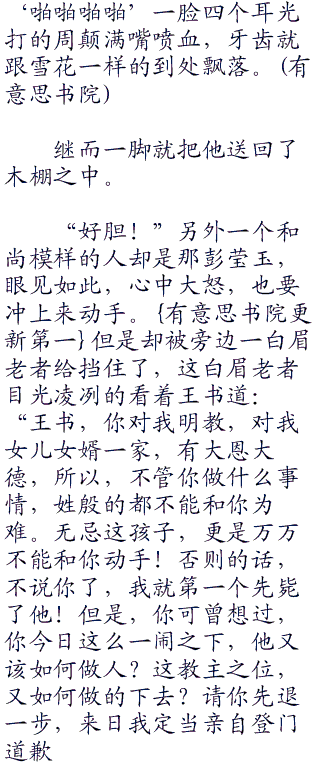 ‘啪啪啪啪’一脸四个耳光
打的周颠满嘴喷血，牙齿就
跟雪花一样的到处飘落。(有
意思书院)
继而一脚就把他送回了
木棚之中。
“好胆！”另外一个和
尚模样的人却是那彭莹玉，
眼见如此，心中大怒，也要
冲上来动手。{有意思书院更
新第一}但是却被旁边一白眉
老者给挡住了，这白眉老者
目光凌冽的看着王书道：
“王书，你对我明教，对我
女儿女婿一家，有大恩大
德，所以，不管你做什么事
情，姓殷的都不能和你为
难。无忌这孩子，更是万万
不能和你动手！否则的话，
不说你了，我就第一个先毙
了他！但是，你可曾想过，
你今日这么一闹之下，他又
该如何做人？这教主之位，
又如何做的下去？请你先退
一步，来日我定当亲自登门
道歉